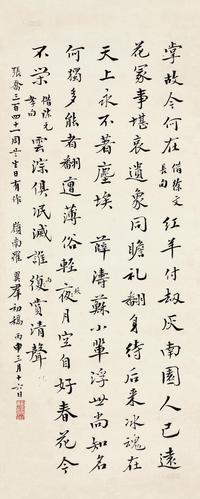 掌故今何在 借陳文長句 紅羊付劫灰南園人已遠
花冢事堪哀遺象同瞻礼翻身待后来冰魂在
天上永不著塵埃 薛濤蘇小輩浮世尚知名
何獨多能者翻遭薄俗輕夜月空自好春花今
不榮 借陳元孝句 雲淙俱泯滅誰復賞清聲
張喬三百四十一周生日有作 嶺南羅翼羣初稿 丙申三月十六日